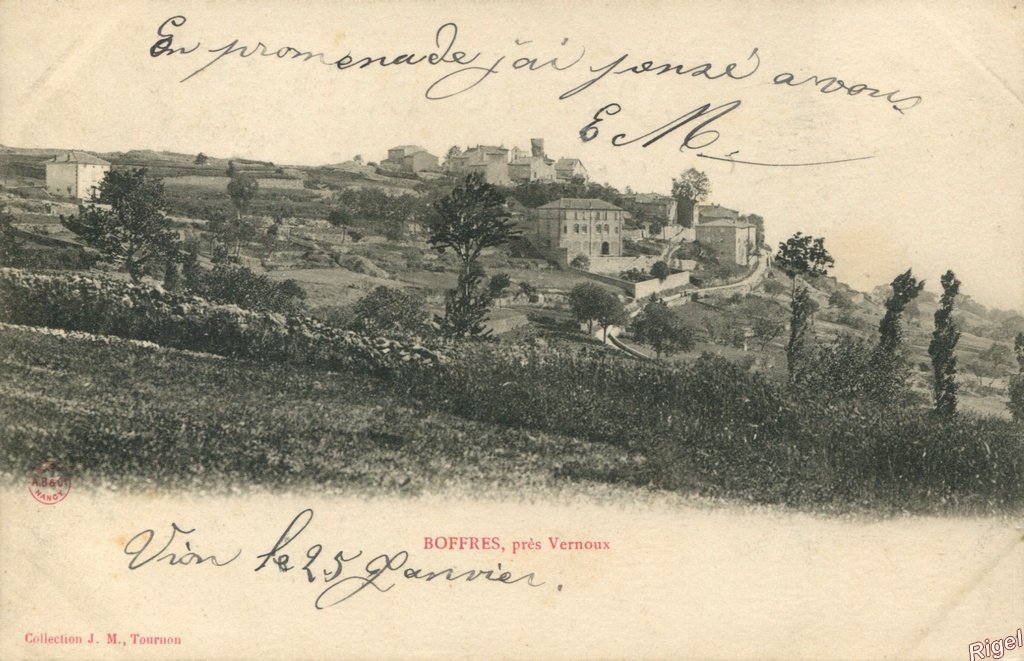 En promenade j'ai pensé a vous
E M.
A.B&Cie
NANCY
BOFFRES, près Vernoux
Vion le 25 Janvier.
Collection J. M., Tournon
Rigel